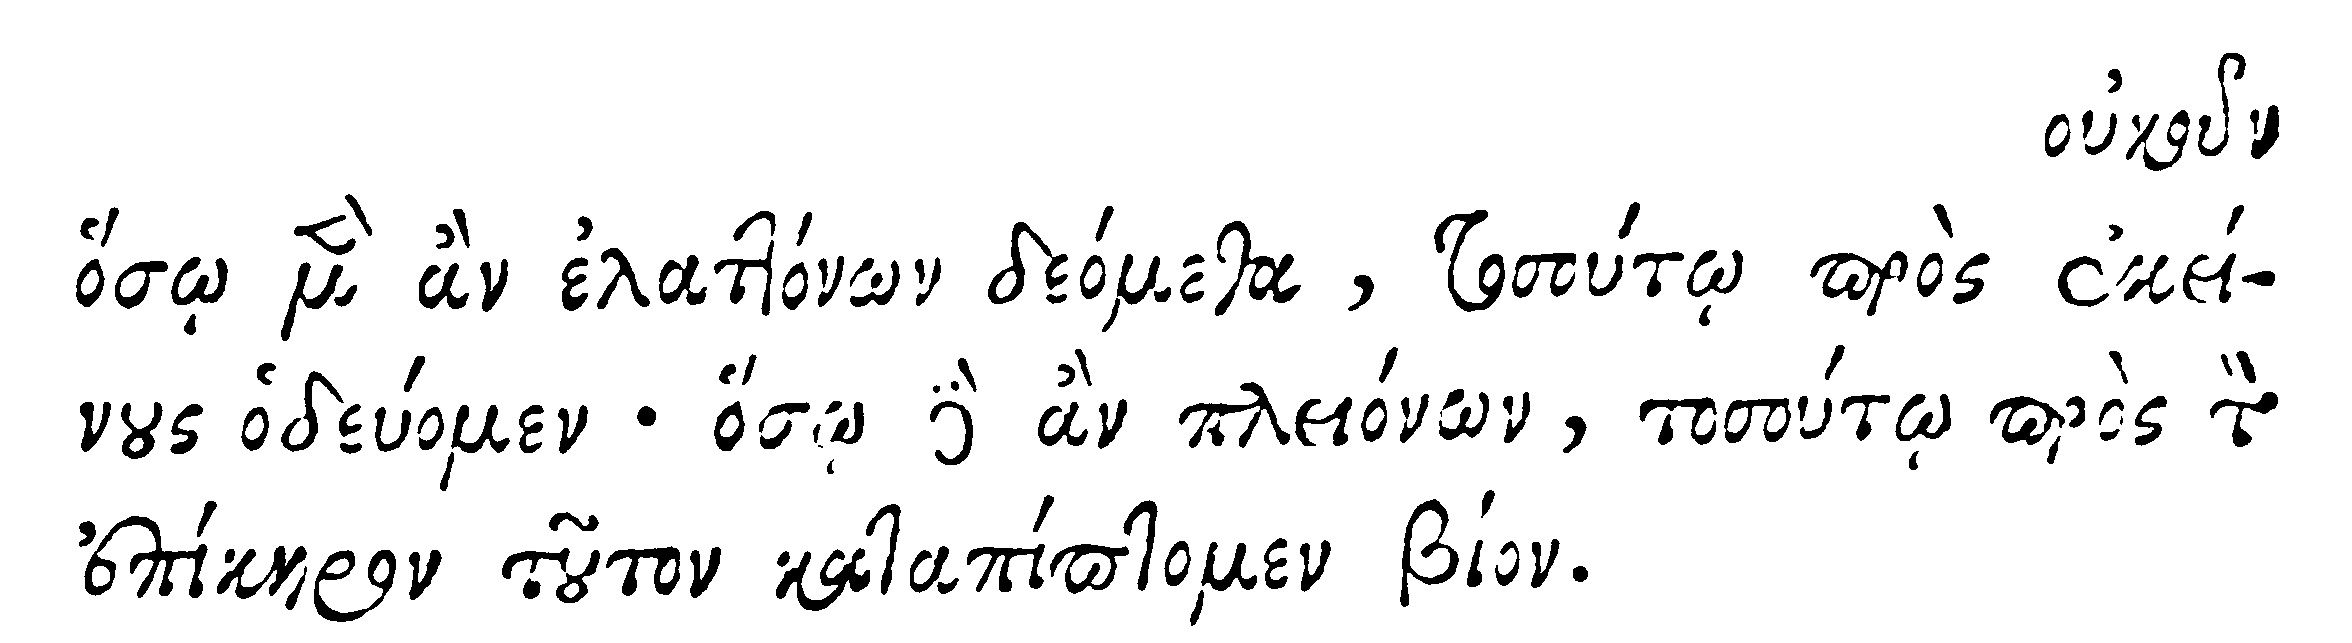 οὐκοῦν
ὅσῳ μὲν ἂν ἐλαττόνων δεόμεθα, τοσούτῳ πρὸς ἐκεί-
νους ὁδεύομεν· ὅσῳ δὲ ἂν πλειόνων, τοσούτῳ πρὸς τὸν
ἐπίκηρον τοῦτον καταπίπτομεν βίον.